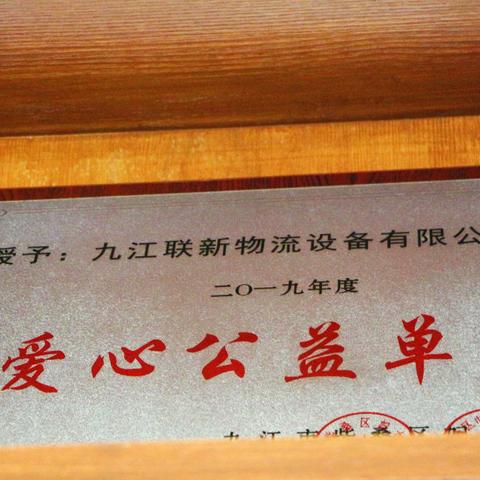 授予：九江联新物流设备有限公
二〇一九年度
爱心公益单
九江市柴桑区